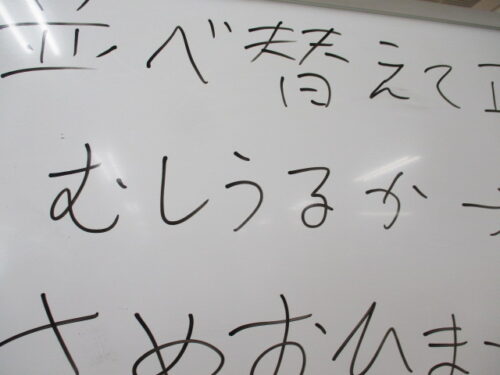 並べ替えて
むしうるか
さめおひま